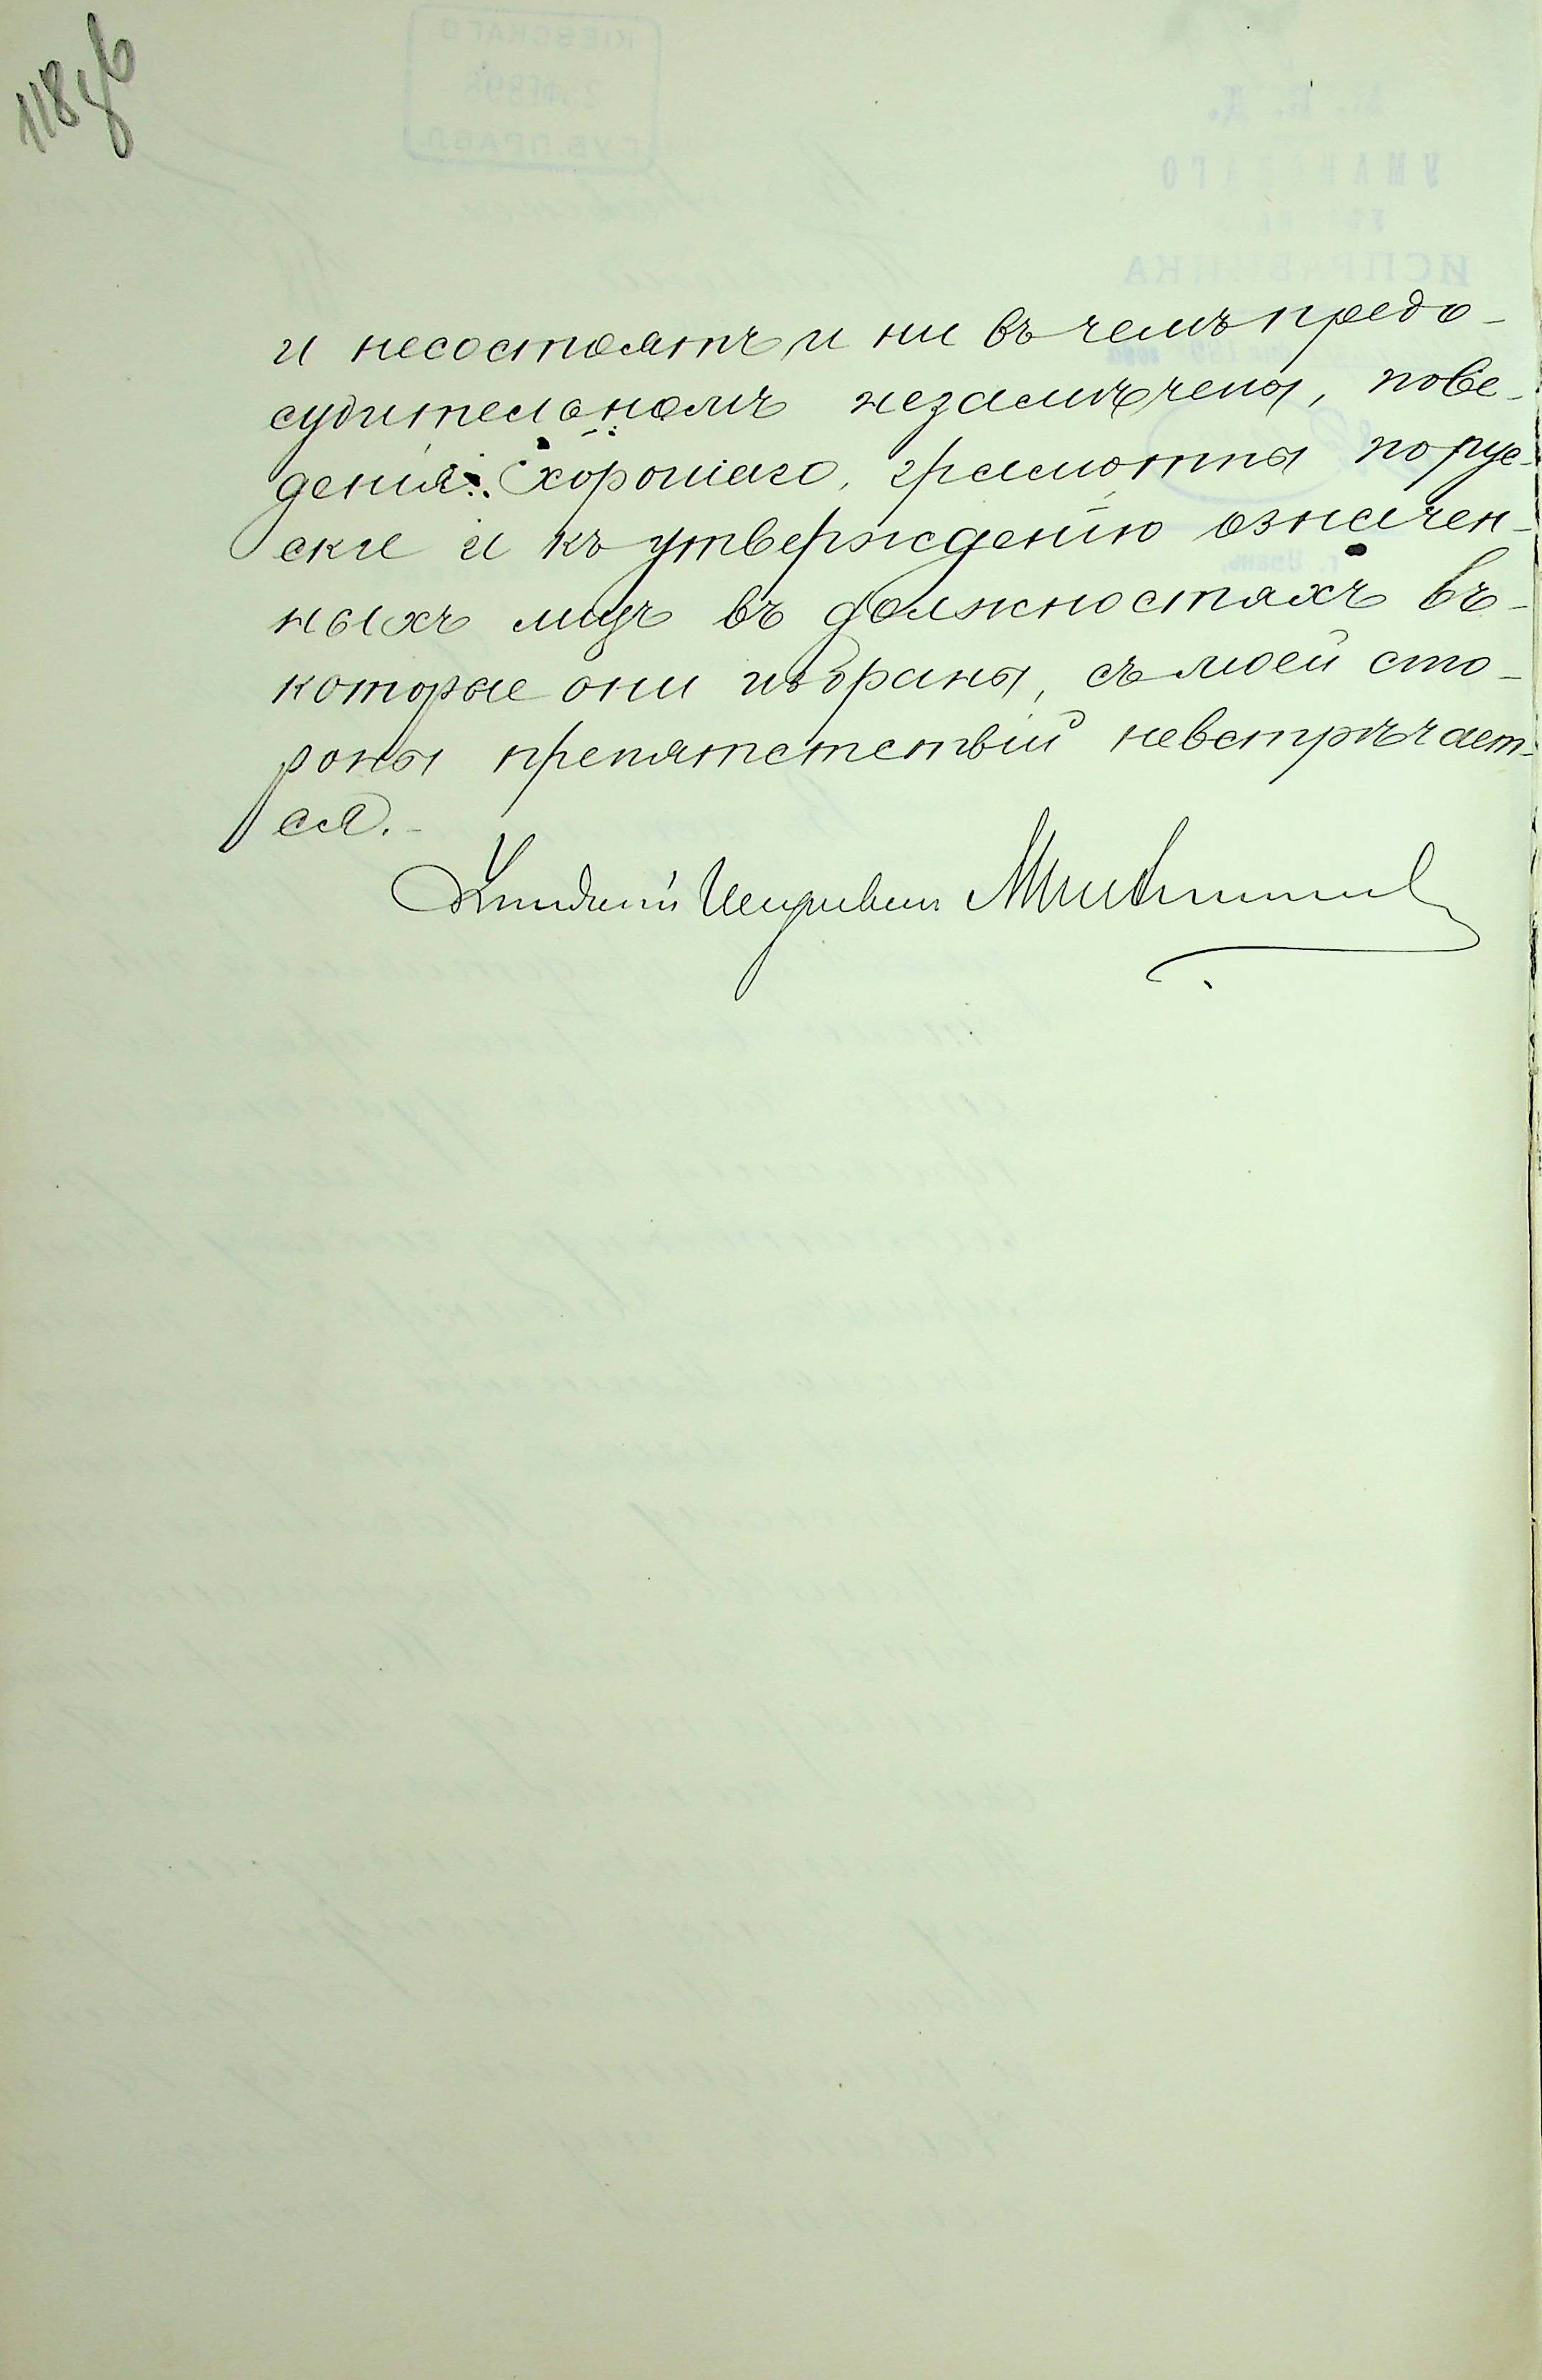 118 об
и несостоятъ и ни въ чемъ предо-
судительномъ незамѣчены, пове-
денія хорошаго, грамотны порус-
ски и къ утвержденію означен-
ныхъ лицъ въ должностяхъ въ-
которые они избраны, съ моей сто-
роны препятстствій невстрѣчает-
ся.-
Уѣздный Исправникъ